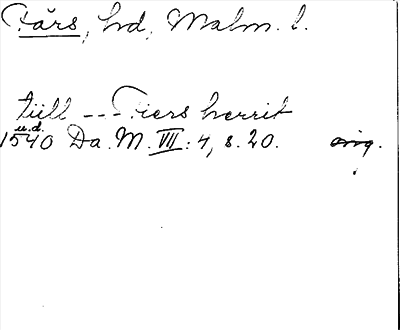 Färs, hd, Malm. l.
till --- Fiers herrit
u.d.
1540 Da. M. VII: 4, s. 20. orig.